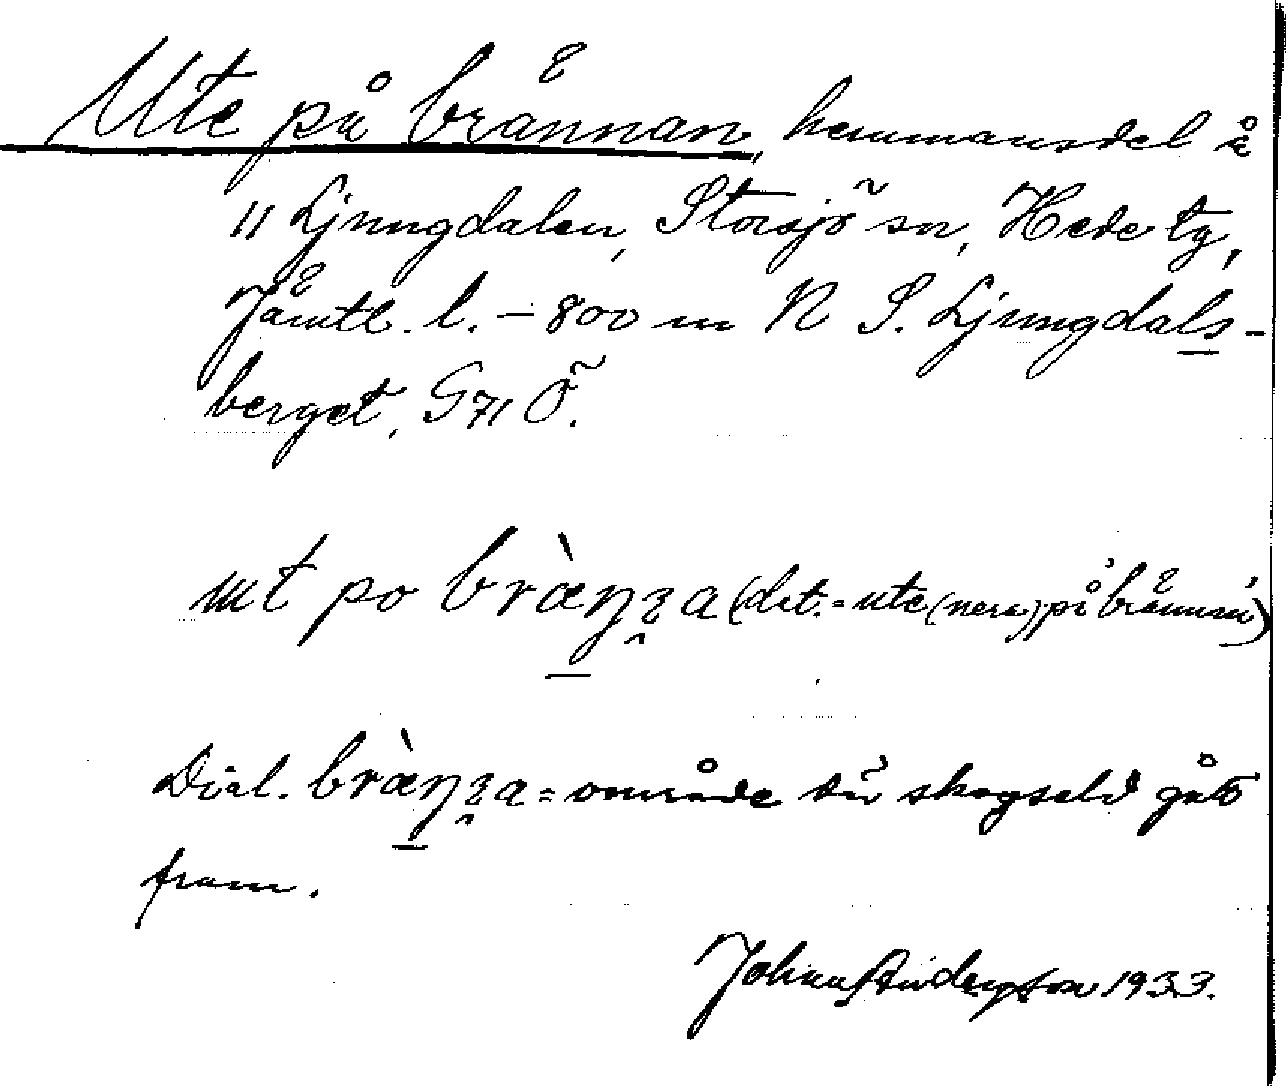 Ute på brännan, hemmansdel å
11 Ljungdalen, Storsjö sn, Hede tg,
Jämtl. l. – 800 m N S. Ljungdals-
berget, G 71 Ö.
ut po bràŋ̣ a (dvs. = ute (nere) på brännan)
Dial. = område där skogseld gått
fram.
Johan Anderson 1933.